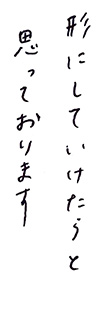 形にしていけたらと
思っております